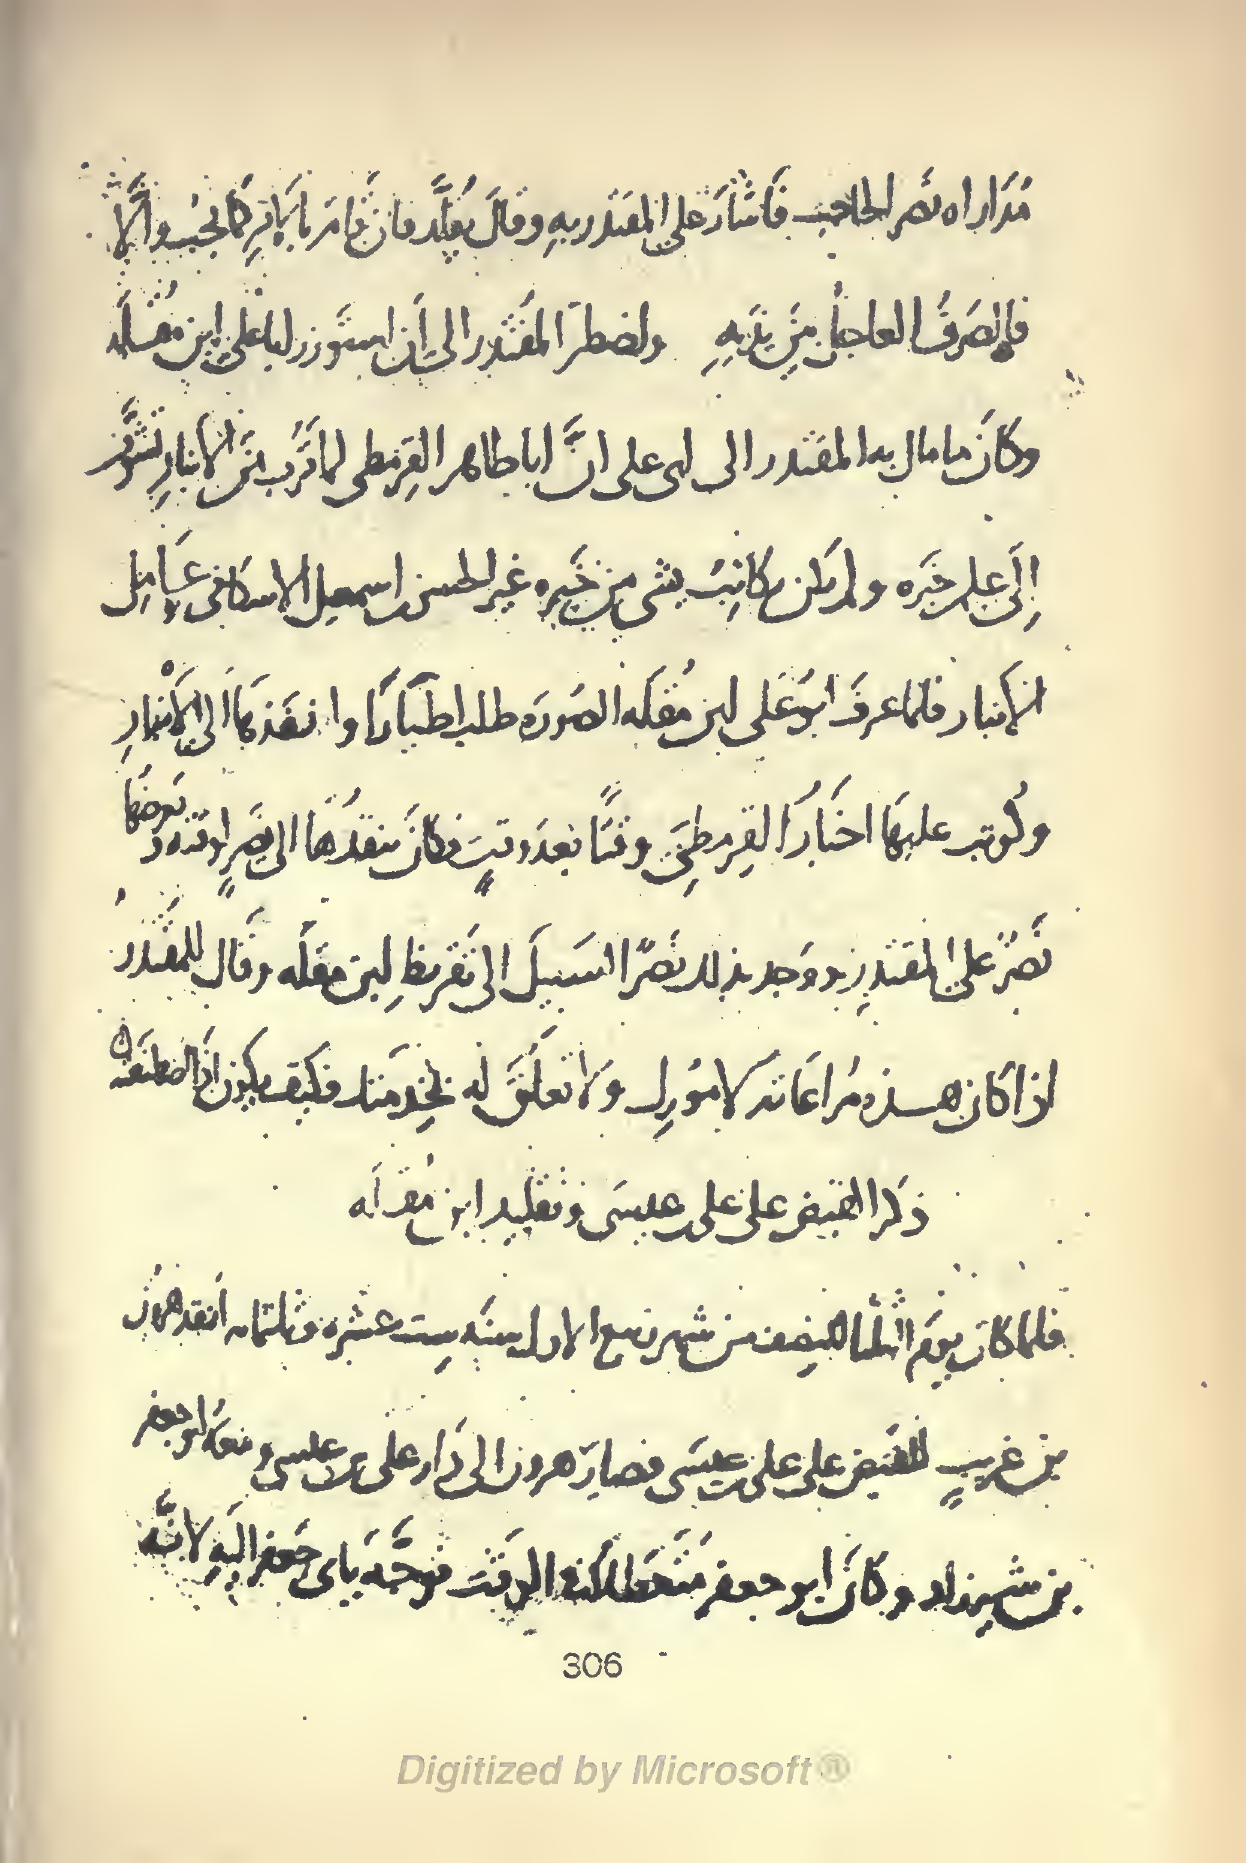 مُدَاراه نصر الحاجب فَاشَارَ على المقتدر بهِ وقَالَ يُقلَّد فان قَامَ بِالامر كَما يجبُ والَّا
فالصَرفُ العاجلُ مِنَ يدَيهِ واضطرَّ المُقتَدر الى أن استَوزر ابا على ابن مُقْلَه
وكانَ مما مال به المقتدر الى ابى على انَّ ابا طاهر القرمطى لما قَرُب مِنَ الانبار تشوّفَ
إلَى علم خبَره ولم يكن يكاتبُ بشىء من خبره غير الحسن بن اسمعيل الاسكافى عَامِل
الانبار فلما عرفَ ابُو عَلى ابن مُقلَه الصُورَه طلب اطيَارًا وانفَذهَا الى الأنبارِ
وكُوتب عليهَا اخبَارُ القرمطىّ وقتًا بعدَ وقتٍ فكانَ ينفذُها الى نصرٍ لوقته ويَعرضُها
نَصرٌ على المقتدرِ ووَجد بذلك نصرٌ السَبيلَ الى تَقْريظِ ابن مقلَه وقَال للمُقْتدرُ
اذا كان هذه مُراعَاته لامُورك ولا تعلّقَ له بخدمَتك فكيف يكون اذا اصطَنَعْتَه
ذكر القبض على على بن عيسَى وتقليد ابن مُقلَه
فلما كان يومَ الثُلثا للنصف من شهر ربيع الاول سنَه ست عشره وثلثمائه انفذ هَرُون
بن غريبٍ للقبض على على بن عيسَى فصارَ هرون الى دَار على بن عيسى ومَعَهُ ابو جعفر
بن شيرزاد وكانَ ابو جعفر متعَطلًا فى الوقت فوجَّهَ بابى جَعفر اليهِ لانّه
306
Digitized by Microsoft®